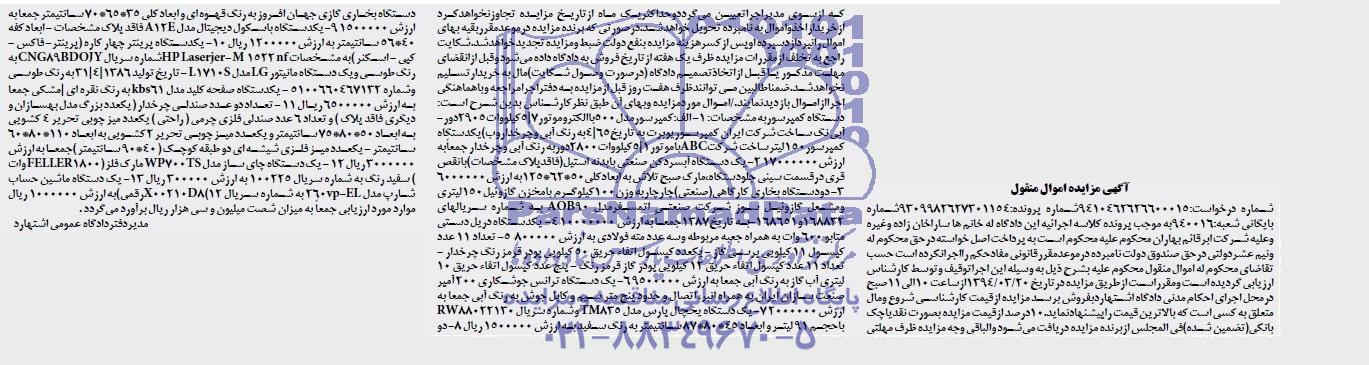 آگهی مزایده اموال منقول
شماره درخواست: ۹۴۱۰۴۶۲۶۲۶۶۰۰۰۱۵ شماره پرونده: ۹۳۰۹۹۸۲۶۲۷۳۰۱۱۵۴ شماره
بایگانی شعبه: ۹۴۰۰۱۶ به موجب پرونده کلاسه اجرائیه این دادگاه له خانم ها سارا خان زاده وغیره
وعلیه شرکت ابر قائم بهاران محکوم علیه محکوم است به پرداخت اصل خواسته در حق محکوم له
ونیم عشر دولتی در حق صندوق دولت نامبرده در موعد مقرر قانونی مفاد حکم را اجرا نکرده است حسب
تقاضای محکوم له اموال منقول محکوم علیه بشرح ذیل به وسیله این اجرا توقیف و توسط کارشناس
ارزیابی گردیده است ومقرر است از طریق مزایده در تاریخ ۱۳۹۴/۰۲/۲۰ از ساعت ۱۰ الی ۱۱ صبح
در محل اجرای احکام مدنی دادگاه اشتهارد بفروش برسد مزایده از قیمت کارشناسی شروع ومال
متعلق به کسی است که بالاترین قیمت را پیشنهاد نماید. ۱۰ درصد از قیمت مزایده بصورت نقد یا چک
بانکی (تضمین شده) فی المجلس از برنده مزایده دریافت می شود والباقی وجه مزایده ظرف مهلتی
که از سوی مدیر اجرا تعیین می گردد وحداکثر یک ماه از تاریخ مزایده تجاوز نخواهد کرد
از خریدار اخذ واموال به نامبرده تحویل خواهد شد. در صورتی که برنده مزایده در موعد مقرر بقیه بهای
اموال را نپردازد سپرده او پس از کسر هزینه مزایده بنفع دولت ضبط ومزایده تجدید خواهد شد. شکایت
راجع به تخلف از مقررات مزایده ظرف یک هفته از تاریخ فروش به دادگاه داده می شود وقبل از انقضای
مهلت مذکور یا قبل از اتخاذ تصمیم دادگاه (در صورت وصول شکایت) مال به خریدار تسلیم
نخواهد شد. ضمنا طالبین می توانند ظرف هفت روز قبل از مزایده به دفتر اجرا مراجعه وباهماهنگی
اجرا از اموال بازدید نمایند./ اموال مورد مزایده وبهای آن طبق نظر کارشناس بدین شرح است:
دستگاه کمپرسور به مشخصات: ۱- الف: کمپرسور مدل ۵۰۰ با الکتروموتور ۷/۵ کیلووات ۲۹۰۵ دور-
آبی رنگ ساخت شرکت ایران کمپرسور بوبرت به تاریخ ۴/۶۵ به رنگ آبی وچرخدار ب) یکدستگاه
کمپرسور ۱۵۰ لیتر ساخت شرکت ABC با موتور ۱/۵ کیلووات ۲۸۰۰ دور به رنگ آبی وچرخدار جمعا به
ارزش ۲۱۷۰۰۰۰۰ - ۲- یک دستگاه آبسردکن صنعتی با بدنه استیل (فاقد پلاک مشخصات) با نقص
قری در قسمت سینی جلو دستگاه، مارک صبح تلاش به ابعاد کلی ۵۰*۶۲*۱۲۵ به ارزش ۶۰۰۰۰۰۰
۳- دو دستگاه بخاری کارگاهی (صنعتی) چارچار به وزن ۱۰۰ کیلوگرم با مخزن گازوئیل ۱۵۰ لیتری
ومشعل گازوئیل سوز شرکت صنعتی اتمسفر مدل AOB۹۰ به شماره سریالهای
۱۶۸۸۳۲ و ۱۶۸۶۵۱ - به تاریخ ۱۳۸۷ جمعا به ارزش ۴۱۰۰۰۰۰۰ - ۴- یکدستگاه دریل دستی
متابو ۶۰۰ وات به همراه جعبه مربوطه وسه عدد مته فولادی به ارزش ۵۸۰۰۰۰۰ - ۵- تعداد ۱۱ عدد
کپسول ۱۱ کیلویی پرسی گاز - یکعدد کپسول اتفاء حریق ۵۰ کیلویی پودر قرمز رنگ چرخدار -
تعداد ۱۱ عدد کپسول اتفاء حریق ۱۲ کیلویی پودر گاز قرمز رنگ - پنج عدد کپسول اتفاء حریق ۱۰
لیتری آب گاز به رنگ آبی جمعا به ارزش ۶۹۵۰۰۰۰۰ - ۶- یک دستگاه ترانس جوشکاری ۲۰۰ آمپر
صنعت سازان ایران به همراه انبر اتصال وحدود پنج متر سیم وکابل جوش به رنگ آبی جمعا به
ارزش ۷۲۰۰۰۰۰۰ - ۷- یک دستگاه یخچال پارس مدل TM۸۳۵ وشماره سریال RW۸۸۰۲۲۱۳۰
با حجم ۹۱ لیتر و ابعاد ۴۵*۸۰*۸۷ سانتیمتر به رنگ سفید به ارزش ۱۵۰۰۰۰۰ ریال ۸- دو
دستگاه بخاری گازی جهان افروز به رنگ قهوه ای و ابعاد کلی ۳۵*۶۵*۷۰ سانتیمتر جمعا به
ارزش ۹۱۵۰۰۰۰۰ - یکدستگاه باسکول دیجیتال مدل A۱۲E فاقد پلاک مشخصات - ابعاد کفه
۴۰*۵۶ سانتیمتر به ارزش ۱۲۰۰۰۰۰ ریال ۱۰- یکدستگاه پرینتر چهار کاره (پرینتر - فاکس -
کپی - اسکنر) به مشخصات HP Laserjer-M ۱۵۲۲ nf شماره سریال CNG۸۹BDOJY به
رنگ طوسی ویک دستگاه مانیتور LG مدل L۱۷۱۰S - تاریخ تولید ۳۱/۴/۱۳۸۶ به رنگ طوسی
وشماره ۵۱۰۰۶۶۰۴۶۷۱۳۲ - یکدستگاه صفحه کلید مدل kbs۶۱ به رنگ نقره ای /مشکی جمعا
به ارزش ۶۵۰۰۰۰۰ ریال ۱۱- تعداد دو عدد صندلی چرخدار (یکعدد بزرگ مدل بهسازان و
دیگری فاقد پلاک) و تعداد ۶ عدد صندلی فلزی چرمی (راحتی) یکعدد میز چوبی تحریر ۴ کشویی
به ابعاد ۵۰*۸۰*۷۵ سانتیمتر و یکعدد میز چوبی تحریر ۲ کشویی به ابعاد ۱۱۰*۸۰*۶۰
سانتیمتر - یکعدد میز فلزی شیشه ای دو طبقه کوچک (۴۰*۹۰ سانتیمتر) جمعا به ارزش
۳۰۰۰۰۰۰ ریال ۱۲- یک دستگاه چای ساز مدل WP۷۰۰TS مارک فلز (FELLER۱۸۰۰ وات
) سفید رنگ به شماره سریال ۱۰۰۲۲۵ به ارزش ۳۰۰۰۰۰ ریال ۱۳- یک دستگاه ماشین حساب
شارپ مدل ۲۶۰۷p-EL به شماره سریال X۰۰۲۱۰D۸ (۱۲ رقمی) به ارزش ۱۰۰۰۰۰۰ ریال
موارد مورد ارزیابی جمعا به میزان شصت میلیون و سی هزار ریال برآورد می گردد.
مدیر دفتر دادگاه عمومی اشتهارد
ParsNamadData
پایگاه اطلاع رسانی مناقصه و مزایده
۰۲۱-۸۸۳۴۹۶۷۰-۵